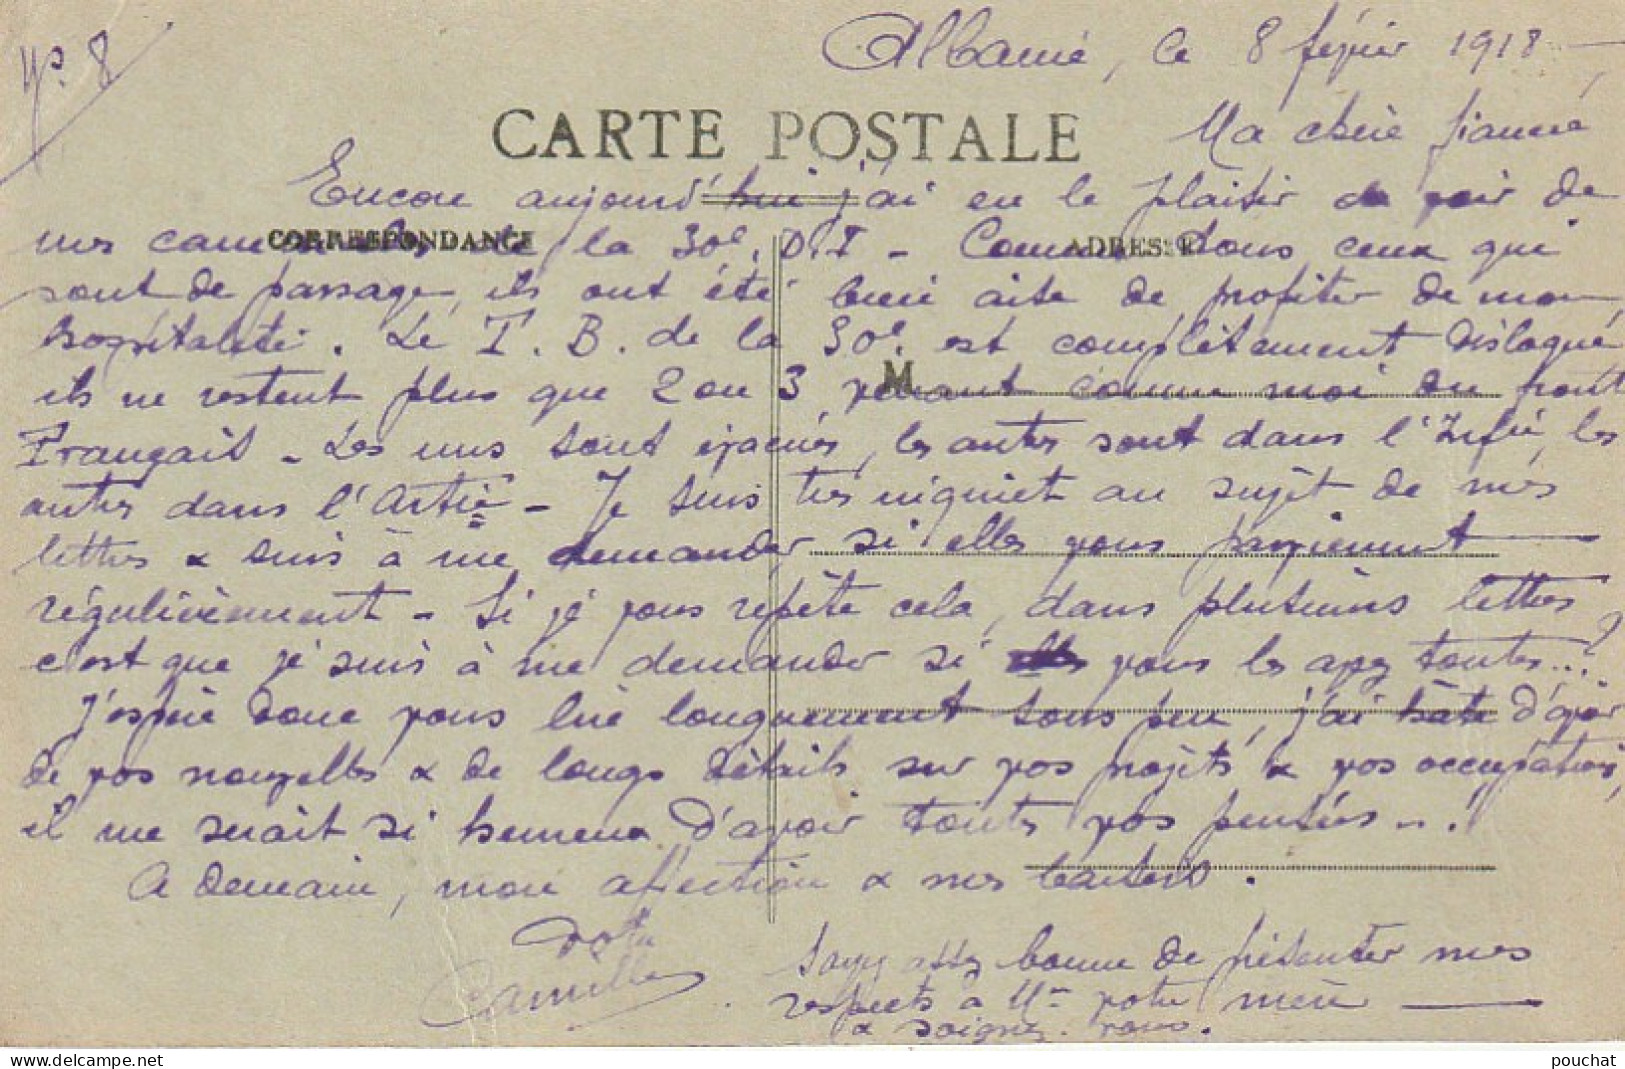 N°. 8
Albanie, le 8 février 1918 -
CARTE POSTALE
Ma chère fiancée,
Encore aujourd'hui j'ai eu le plaisir de voir de
CORRESPONDANCE
ADRESSE
mes camarades de la 30e. D.I - Comme tous ceux qui
sont de passage, ils ont été bien aise de profiter de mon
hospitalité. Le T. B. de la 30e. est complètement disloqué,
M
ils ne restent plus que 2 ou 3, venant comme moi du front
Français - Les uns sont évacués, les autres sont dans l'Infie, les
autres dans l'Artie - Je suis très inquiet au sujet de mes
lettres & suis à me demander si elles vous parviennent
régulièrement - Si je vous répète cela, dans plusieurs lettres
c'est que je suis à me demander si vous les avez toutes...?
J'espère donc vous lire longuement sous peu, j'ai hâte d'avoir
de vos nouvelles & de longs détails sur vos projets & vos occupations,
il me serait si heureux d'avoir toutes vos pensées...!
A demain, mon affection & mes baisers.
Votre
Camille
Soyez assez bonne de présenter mes
respects à Me votre mère
& soignez-vous.
pouchat